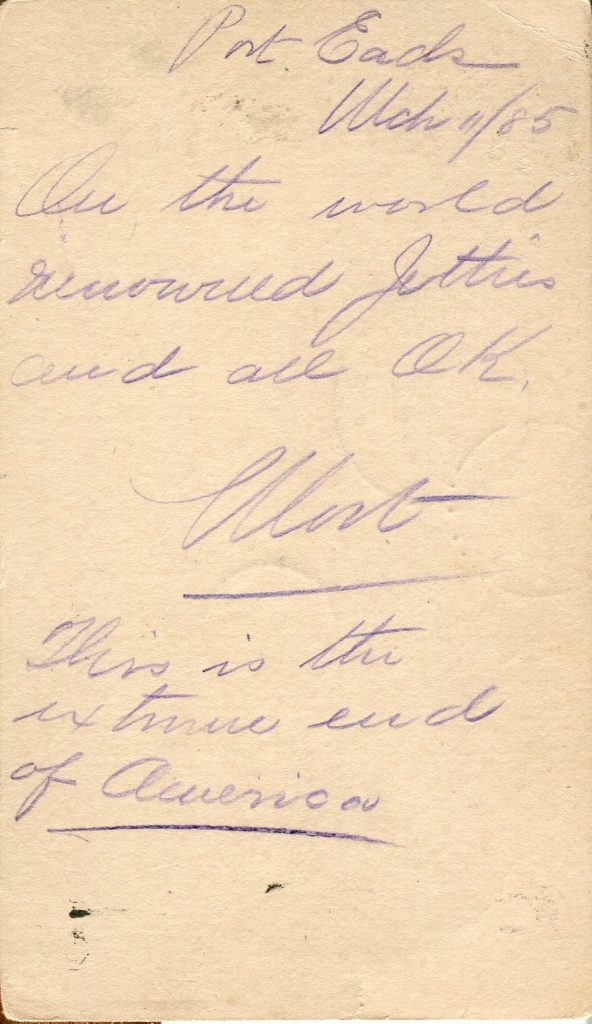 Port Eads
Mch 11/85
On the world
renowned Jetties
and all OK.
This is the
extreme end
of America